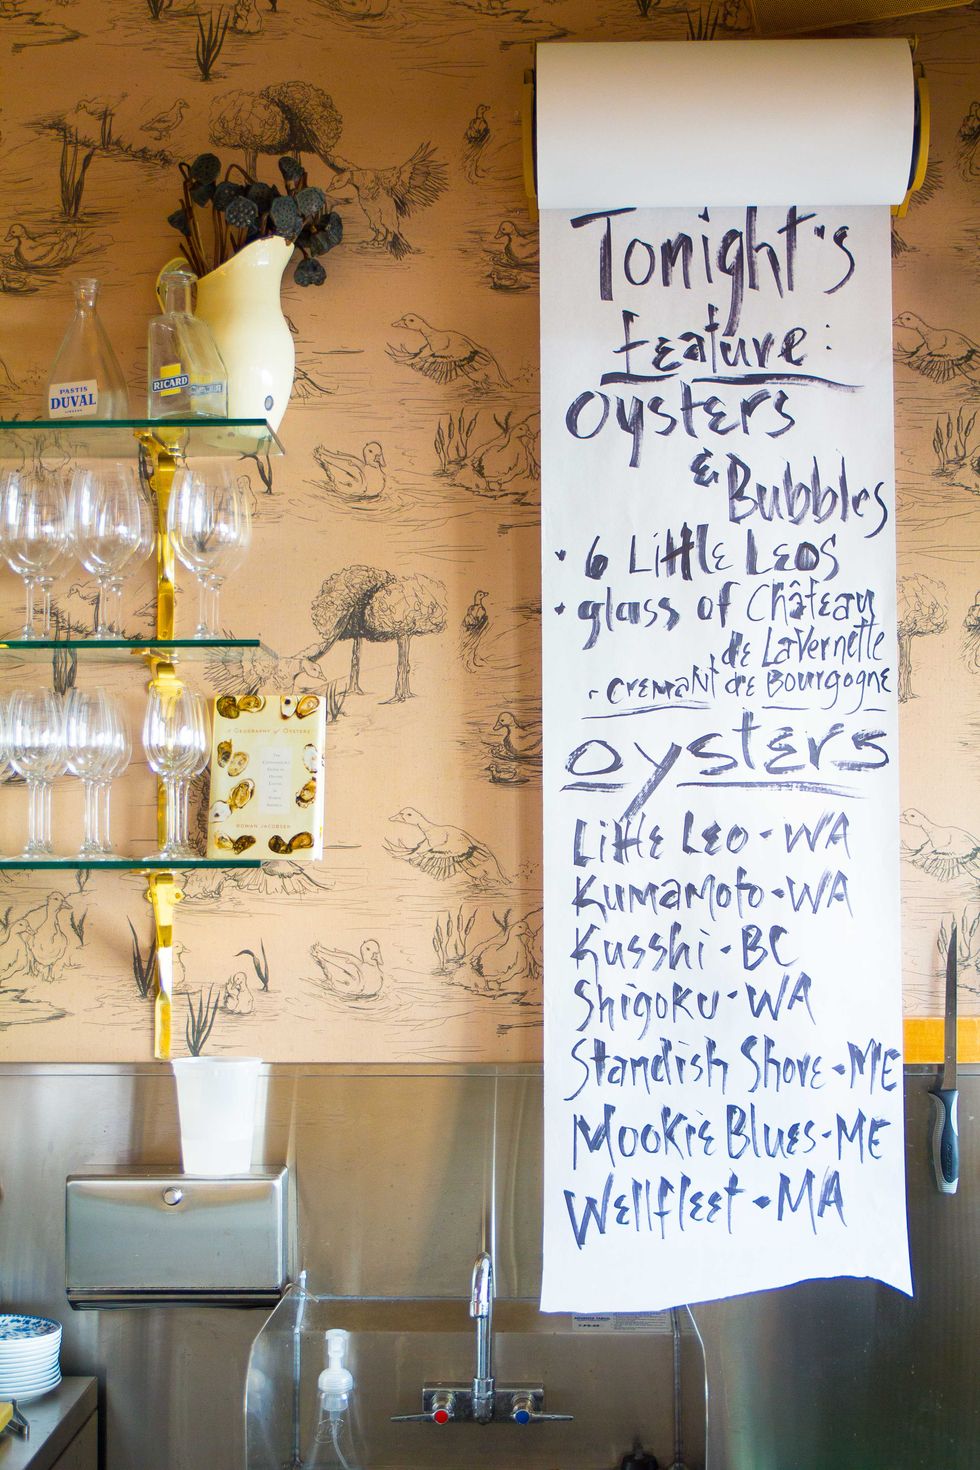 Tonight's
Feature:
Oysters
& Bubbles
• 6 Little Leos
• glass of Château
de LaVernette
- cremant de Bourgogne
oysters
Little Leo - WA
Kumamoto - WA
Kusshi - BC
Shigoku - WA
Standish Shore - ME
Mookie Blues - ME
Wellfleet - MA
PASTIS
DUVAL
RICARD
A GEOGRAPHY of OYSTERS
ROWAN JACOBSEN